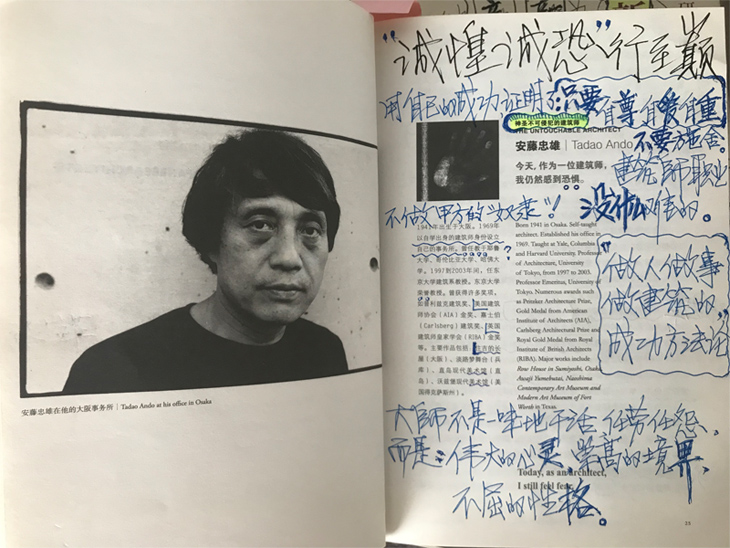 "诚惶诚恐"行至巅
用自己的成功证明了：只要有尊有爱有重
神圣不可侵犯的建筑师
THE UNTOUCHABLE ARCHITECT
不要方苞舍。
安藤忠雄 | Tadao Ando
建筑師职业
今天，作为一位建筑师，
我仍然感到恐惧。
没什么
不做甲方的"奴隶"！
1941年出生于大阪。1969年
以自学出身的建筑师身份设立
自己的事务所。曾任教于耶鲁
大学、哥伦比亚大学、哈佛大
学。1997到2003年间，任东
京大学建筑系教授。东京大学
荣誉教授。曾获得许多奖项，
如普利兹克建筑奖、美国建筑
师协会（AIA）金奖、嘉士伯
（Carlsberg）建筑奖、英国
建筑师皇家学会（RIBA）金奖
等。主要作品包括：住吉的长
屋（大阪）、淡路梦舞台（兵
库）、直岛现代美术馆（直
岛）、沃兹堡现代美术馆（美
国得克萨斯州）。
Born 1941 in Osaka. Self-taught
architect. Established his office in
1969. Taught at Yale, Columbia
and Harvard University. Professor
of Architecture, University
of Tokyo, from 1997 to 2003.
Professor Emeritus, University of
Tokyo. Numerous awards such
as Pritzker Architecture Prize,
Gold Medal from American
Institute of Architects (AIA),
Carlsberg Architectural Prize and
Royal Gold Medal from Royal
Institute of British Architects
(RIBA). Major works include
Row House in Sumiyoshi, Osaka
Awaji Yumebutai, Naoshima
Contemporary Art Museum and
Modern Art Museum of Fort
Worth in Texas.
"做人做事
做建筑的"
成功方法论
安藤忠雄在他的大阪事务所 | Tadao Ando at his office in Osaka
大師不是一味地干活 任劳任怨，
而是：伟大的心灵，崇高的境界，
Today, as an architect,
I still feel fear.
不屈的性格。